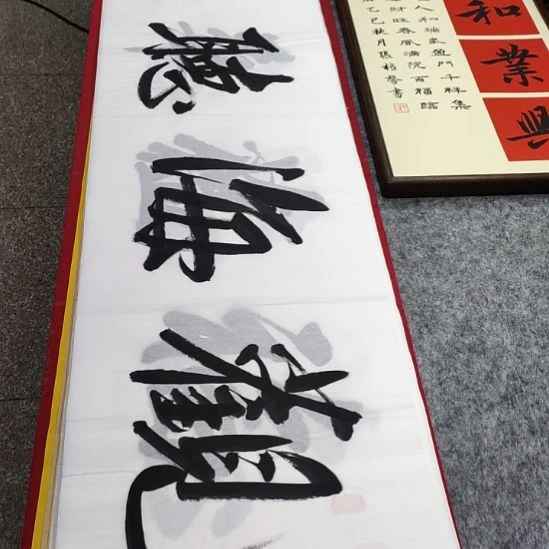 觀海聽
和業興
人和瑞氣盈門千祥集
財旺春風滿院百福臨
乙巳秋月張
書